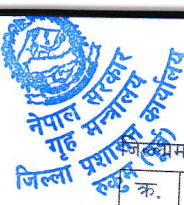 नेपाल सरकार
गृह मन्त्रालय
जिल्ला प्रशासन कार्यालय
रुकुम (पूर्व)
क्र.